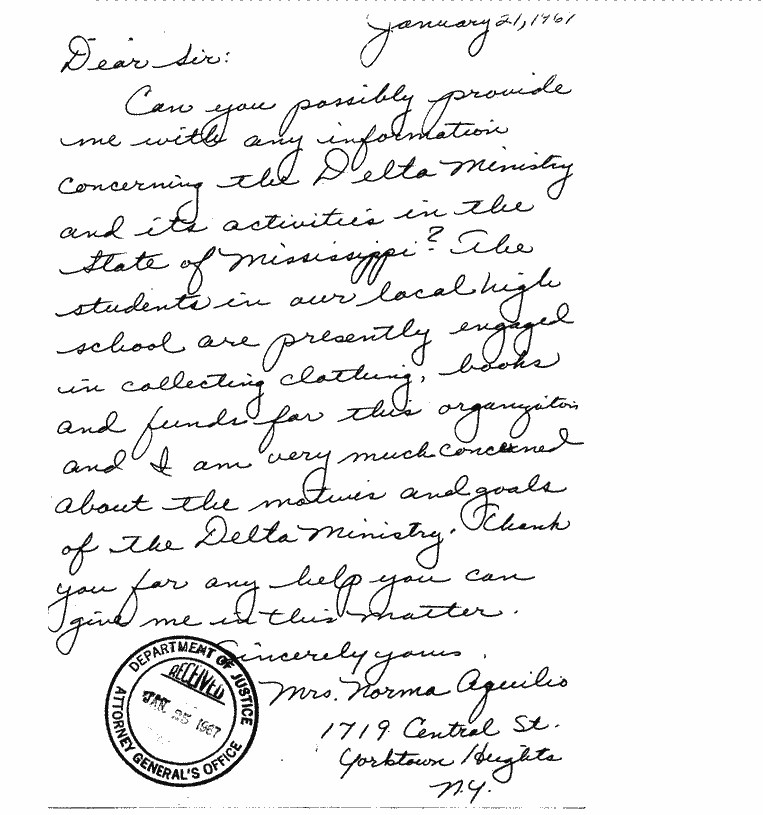 January 21, 1961
Dear Sir:
Can you possibly provide
me with any information
concerning the Delta Ministry
and its activities in the
State of Mississippi? The
students in our local high
school are presently engaged
in collecting clothing, books
and funds for this organization
and I am very much concerned
about the motives and goals
of the Delta Ministry. Thank
you for any help you can
give me in this matter.
Sincerely yours,
Mrs. Norma Aquilio
1719 Central St.
Yorktown Heights
N.Y.
DEPARTMENT OF JUSTICE
RECEIVED
JAN 25 1967
ATTORNEY GENERAL'S OFFICE